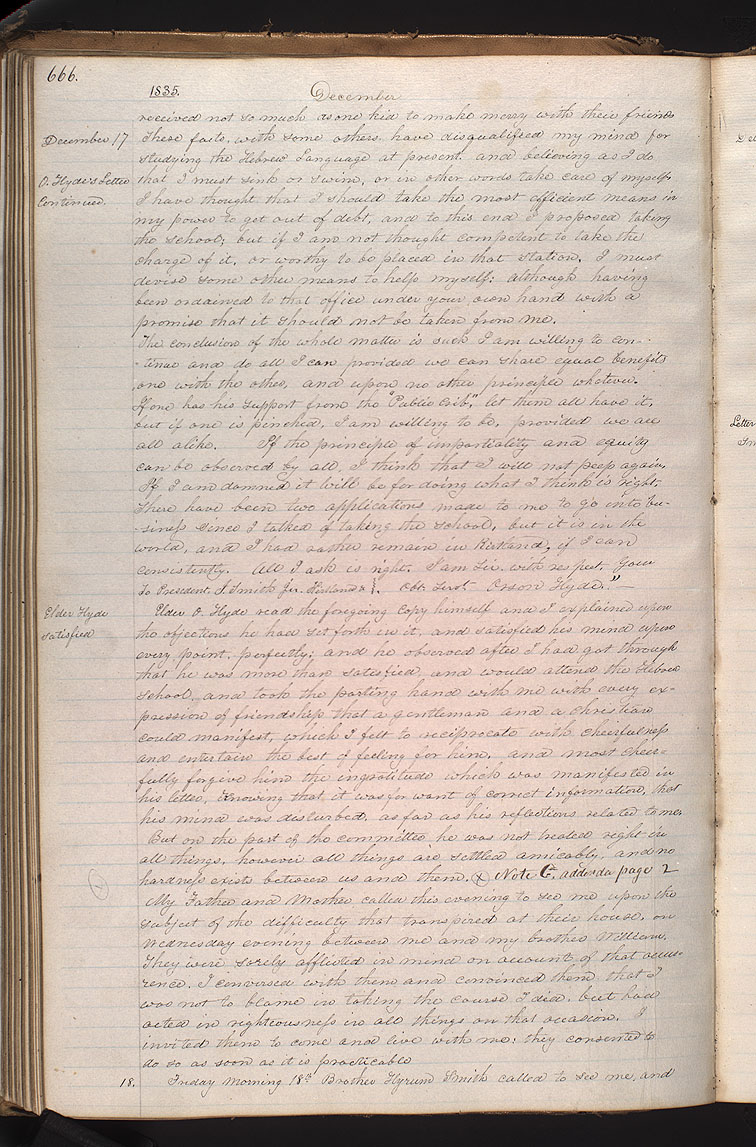 666.
1835. December
received not so much as one kid to make merry with their friends
December 17
These facts, with some others have disqualified my mind for
studying the Hebrew Language at present, and believing as I do
O. Hyde's Letter
Continued.
that I must sink or swim, or in other words take care of myself,
I have thought that I should take the most efficient means in
my power to get out of debt, and to this end I proposed taking
the school; but if I am not thought competent to take the
charge of it, or worthy to be placed in that station, I must
devise some other means to help myself: although having
been ordained to that office under your own hand with a
promise that it should not be taken from me.
The conclusion of the whole matter is such I am willing to con-
-tinue and do all I can provided we can share equal benefits
one with the other, and upon no other principle whatever.
If one has his support from the "Public Crib," let them all have it,
but if one is pinched, I am willing to be, provided we are
all alike. If the principle of impartiality and equity
can be observed by all, I think that I will not peep again.
If I am damned it will be for doing what I think is right.
There have been two applications made to me to go into bu-
-siness since I talked of taking the school, but it is in the
world, and I had rather remain in Kirtland, if I can
consistently. All I ask is right. I am Sir, with respect, Your
To President J. Smith Jr. Kirtland &c. Obt. Servt. Orson Hyde."
Elder Hyde
satisfied
Elder O. Hyde read the foregoing copy himself and I explained upon
the objections he had set forth in it, and satisfied his mind upon
every point, perfectly; and he observed after I had got through
that he was more than satisfied, and would attend the Hebrew
School, and took the parting hand with me with every ex-
-pression of friendship that a gentleman and a christian
could manifest, which I felt to reciprocate with cheerfulness
and entertain the best of feeling for him, and most cheer-
fully forgive him the ingratitude which was manifested in
his letter, knowing that it was for want of correct information, that
his mind was disturbed, as far as his reflections related to me.
But on the part of the committee he was not treated right in
all things, however all things are settled amicably, and no
hardness exists between us and them. x Note G, addenda page 2
x
My Father and Mother called this evening to see me upon the
subject of the difficulty that transpired at their house, on
Wednesday evening between me and my brother William.
They were sorely afflicted in mind on account of that occur-
rence. I conversed with them and convinced them that I
was not to blame in taking the course I did, but had
acted in righteousness in all things on that occasion. I
invited them to come and live with me: they consented to
do so as soon as it is practicable
18. Friday Morning 18th Brother Hyrum Smith called to see me, and
Letter